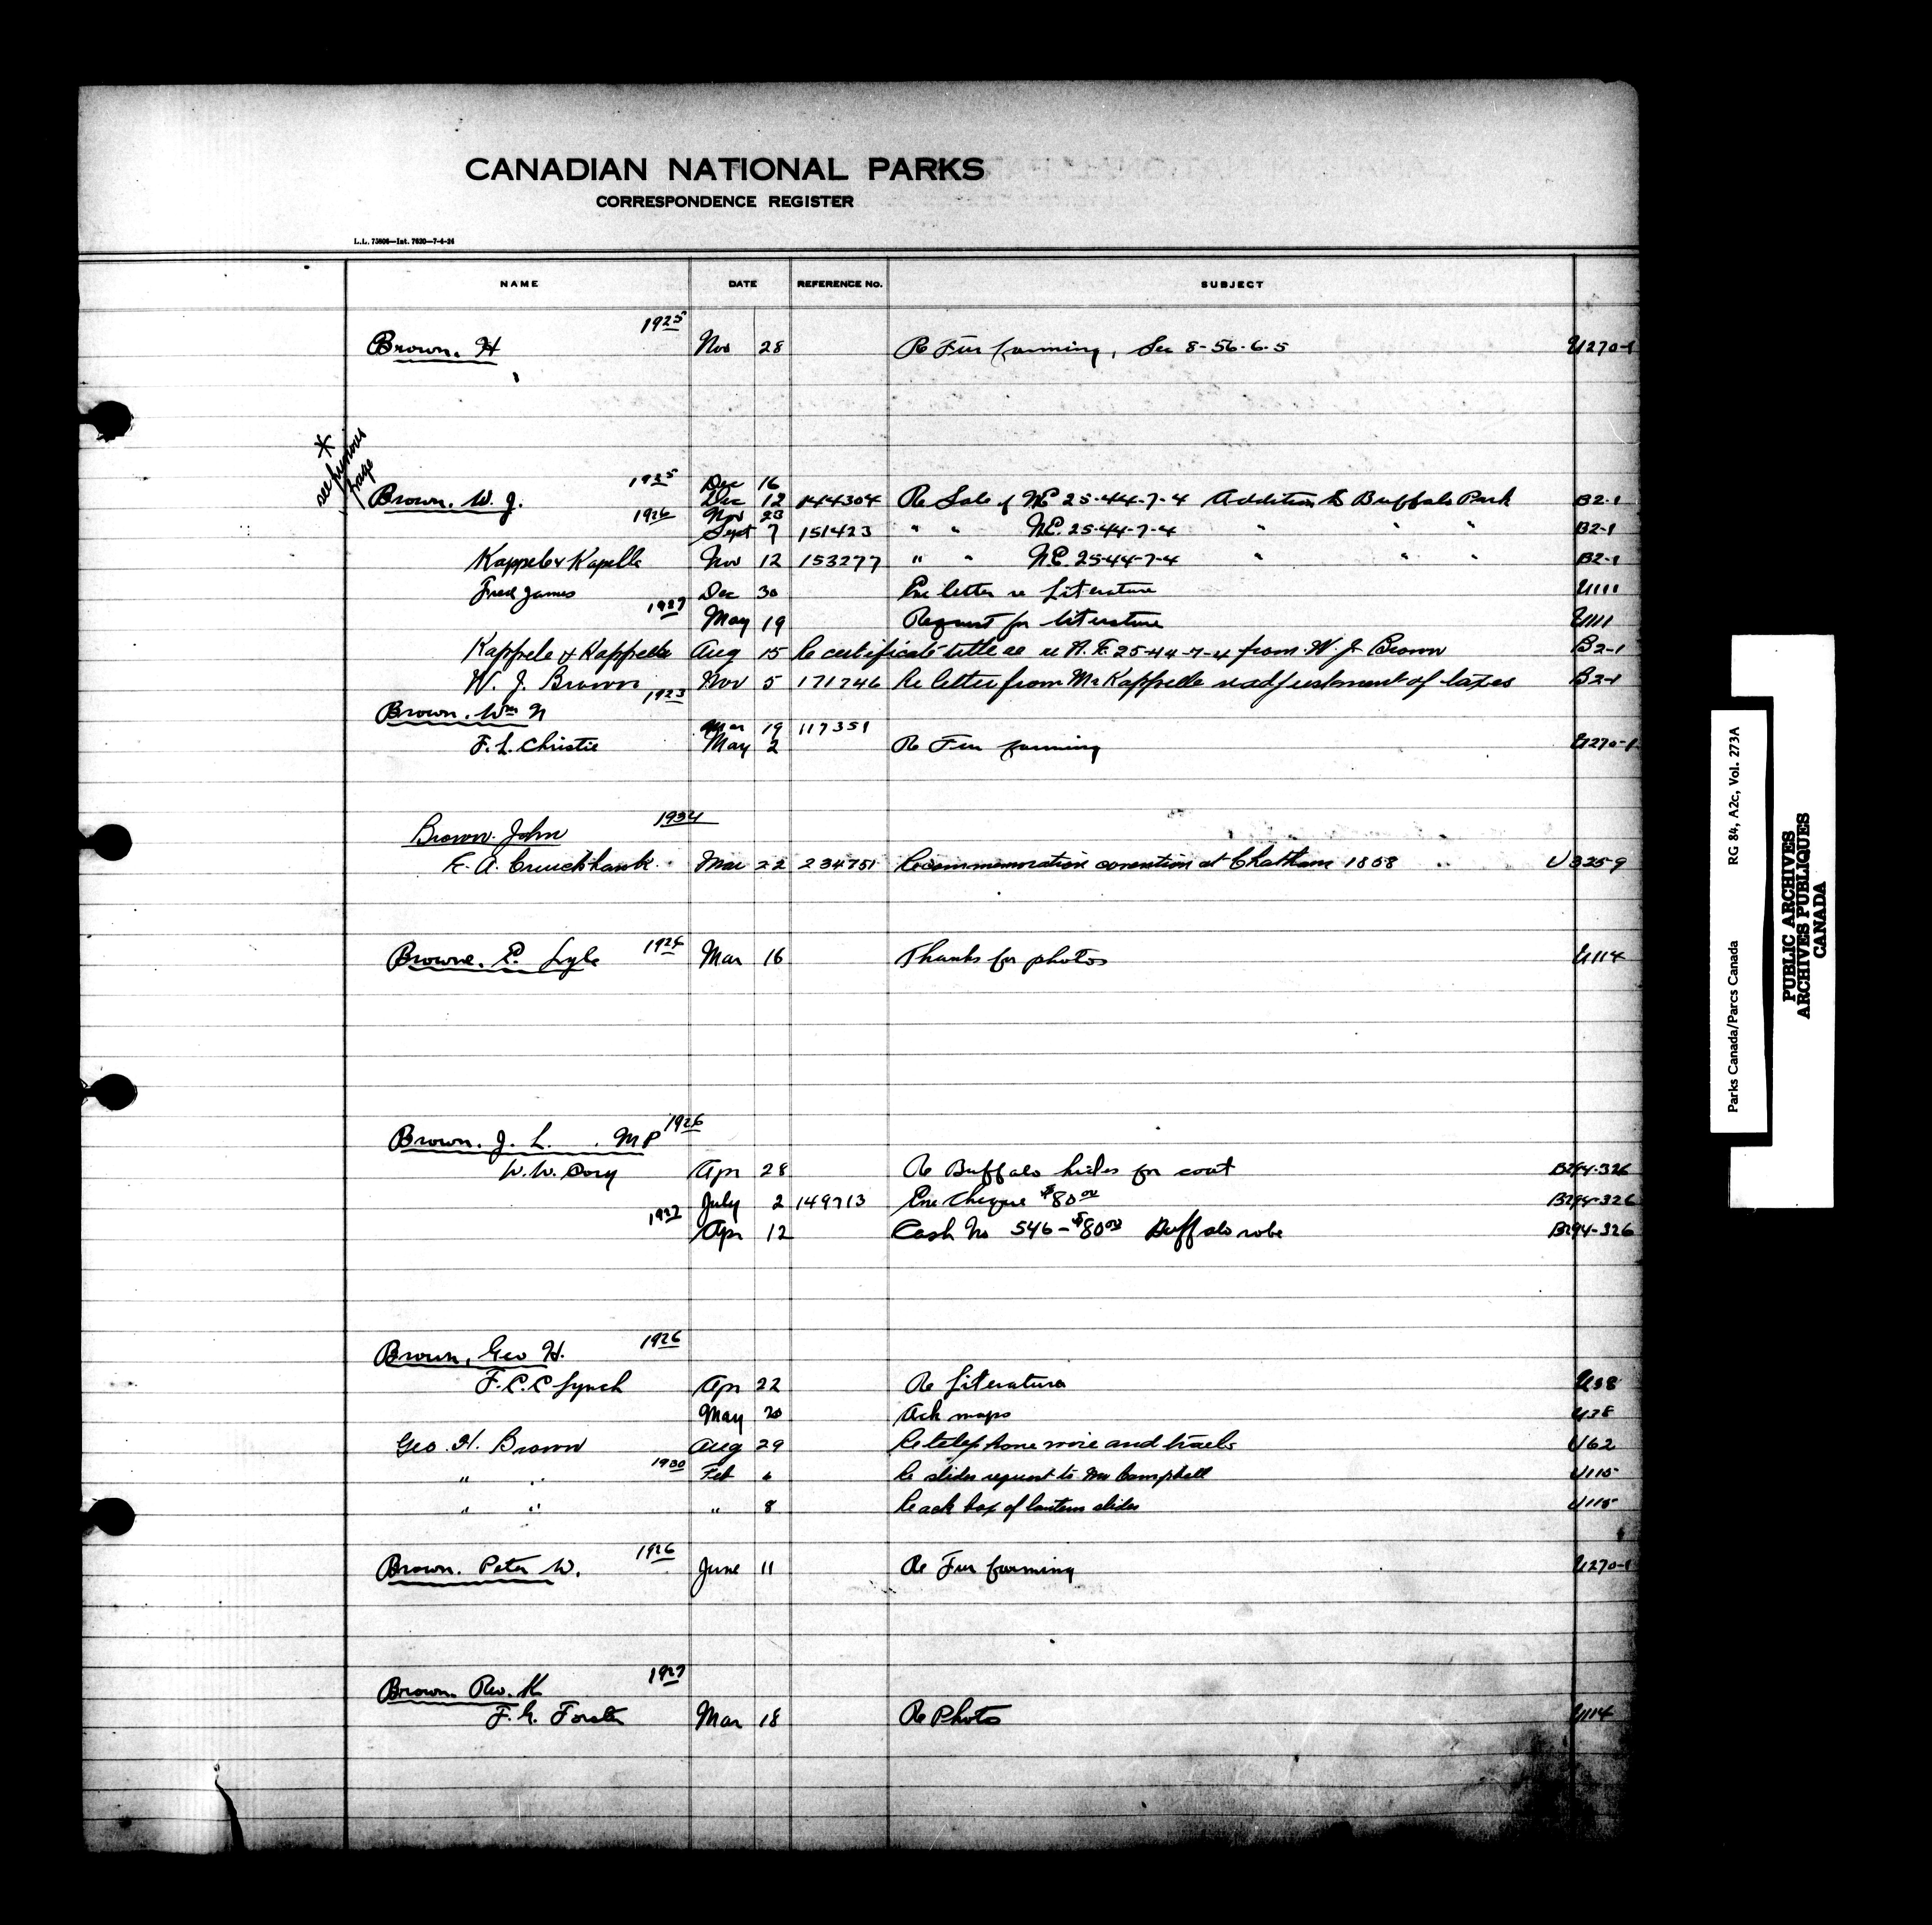 CANADIAN NATIONAL PARKS
CORRESPONDENCE REGISTER
L.L. 75806—Int. 7620—7-4-24
NAME DATE REFERENCE No. SUBJECT
1925
Brown. H Nov 28 Re Fur farming, Sec 8-56-6-5 U270-1
* see previous page
1925 Dec 16
Brown. W. J. Dec 12 144304 Re Sale of NE 25-44-7-4 Addition to Buffalo Park B2-1
1926 Nov 23
Sept 7 151423 " " N.E. 25-44-7-4 " " " B2-1
Kappele & Kapelle Nov 12 153277 " " N.E. 25-44-7-4 " " " B2-1
Fred James Dec 30 Enc letter re Literature U111
1927 May 19 Request for literature U111
Kappele & Kappelle Aug 15 Re certificate title re N.E. 25-44-7-4 from W. J. Brown B2-1
W. J. Brown Nov 5 171746 Re letter from Mr Kappelle readjustment of taxes B2-1
1923
Brown. Wm N
Mar 19 117351
F. L. Christie May 2 Re Fur farming U270-1
Brown. John 1934
E. A. Cruickshank. Mar 22 234751 Re commemoration convention at Chatham 1858 U325-9
Browne. E. Lyle 1926 Mar 16 Thanks for photos U114
Brown. J. L. M P 1926
W. W. Cory Apr 28 Re Buffalo hides for coat B294-326
July 2 149713 Enc cheque $80.00 B294-326
1927 Apr 12 Cash No 546-$80.00 Buffalo robe B294-326
Brown, Geo H. 1926
F. C. C Lynch Apr 22 Re Literature U38
May 20 Ack maps U38
Geo. H. Brown Aug 29 Re telephone wire and trails U62
1930
" " Feb 6 Re slides request to Mr Campbell U115
" " " 8 Re ack box of lantern slides U115
Brown. Peter W. 1926 June 11 Re Fur farming U270-1
Brown. Rev. K 1927
F. G. Forster Mar 18 Re Photos U114
Parks Canada/Parcs Canada RG 84, A2c, Vol. 273A
PUBLIC ARCHIVES
ARCHIVES PUBLIQUES
CANADA